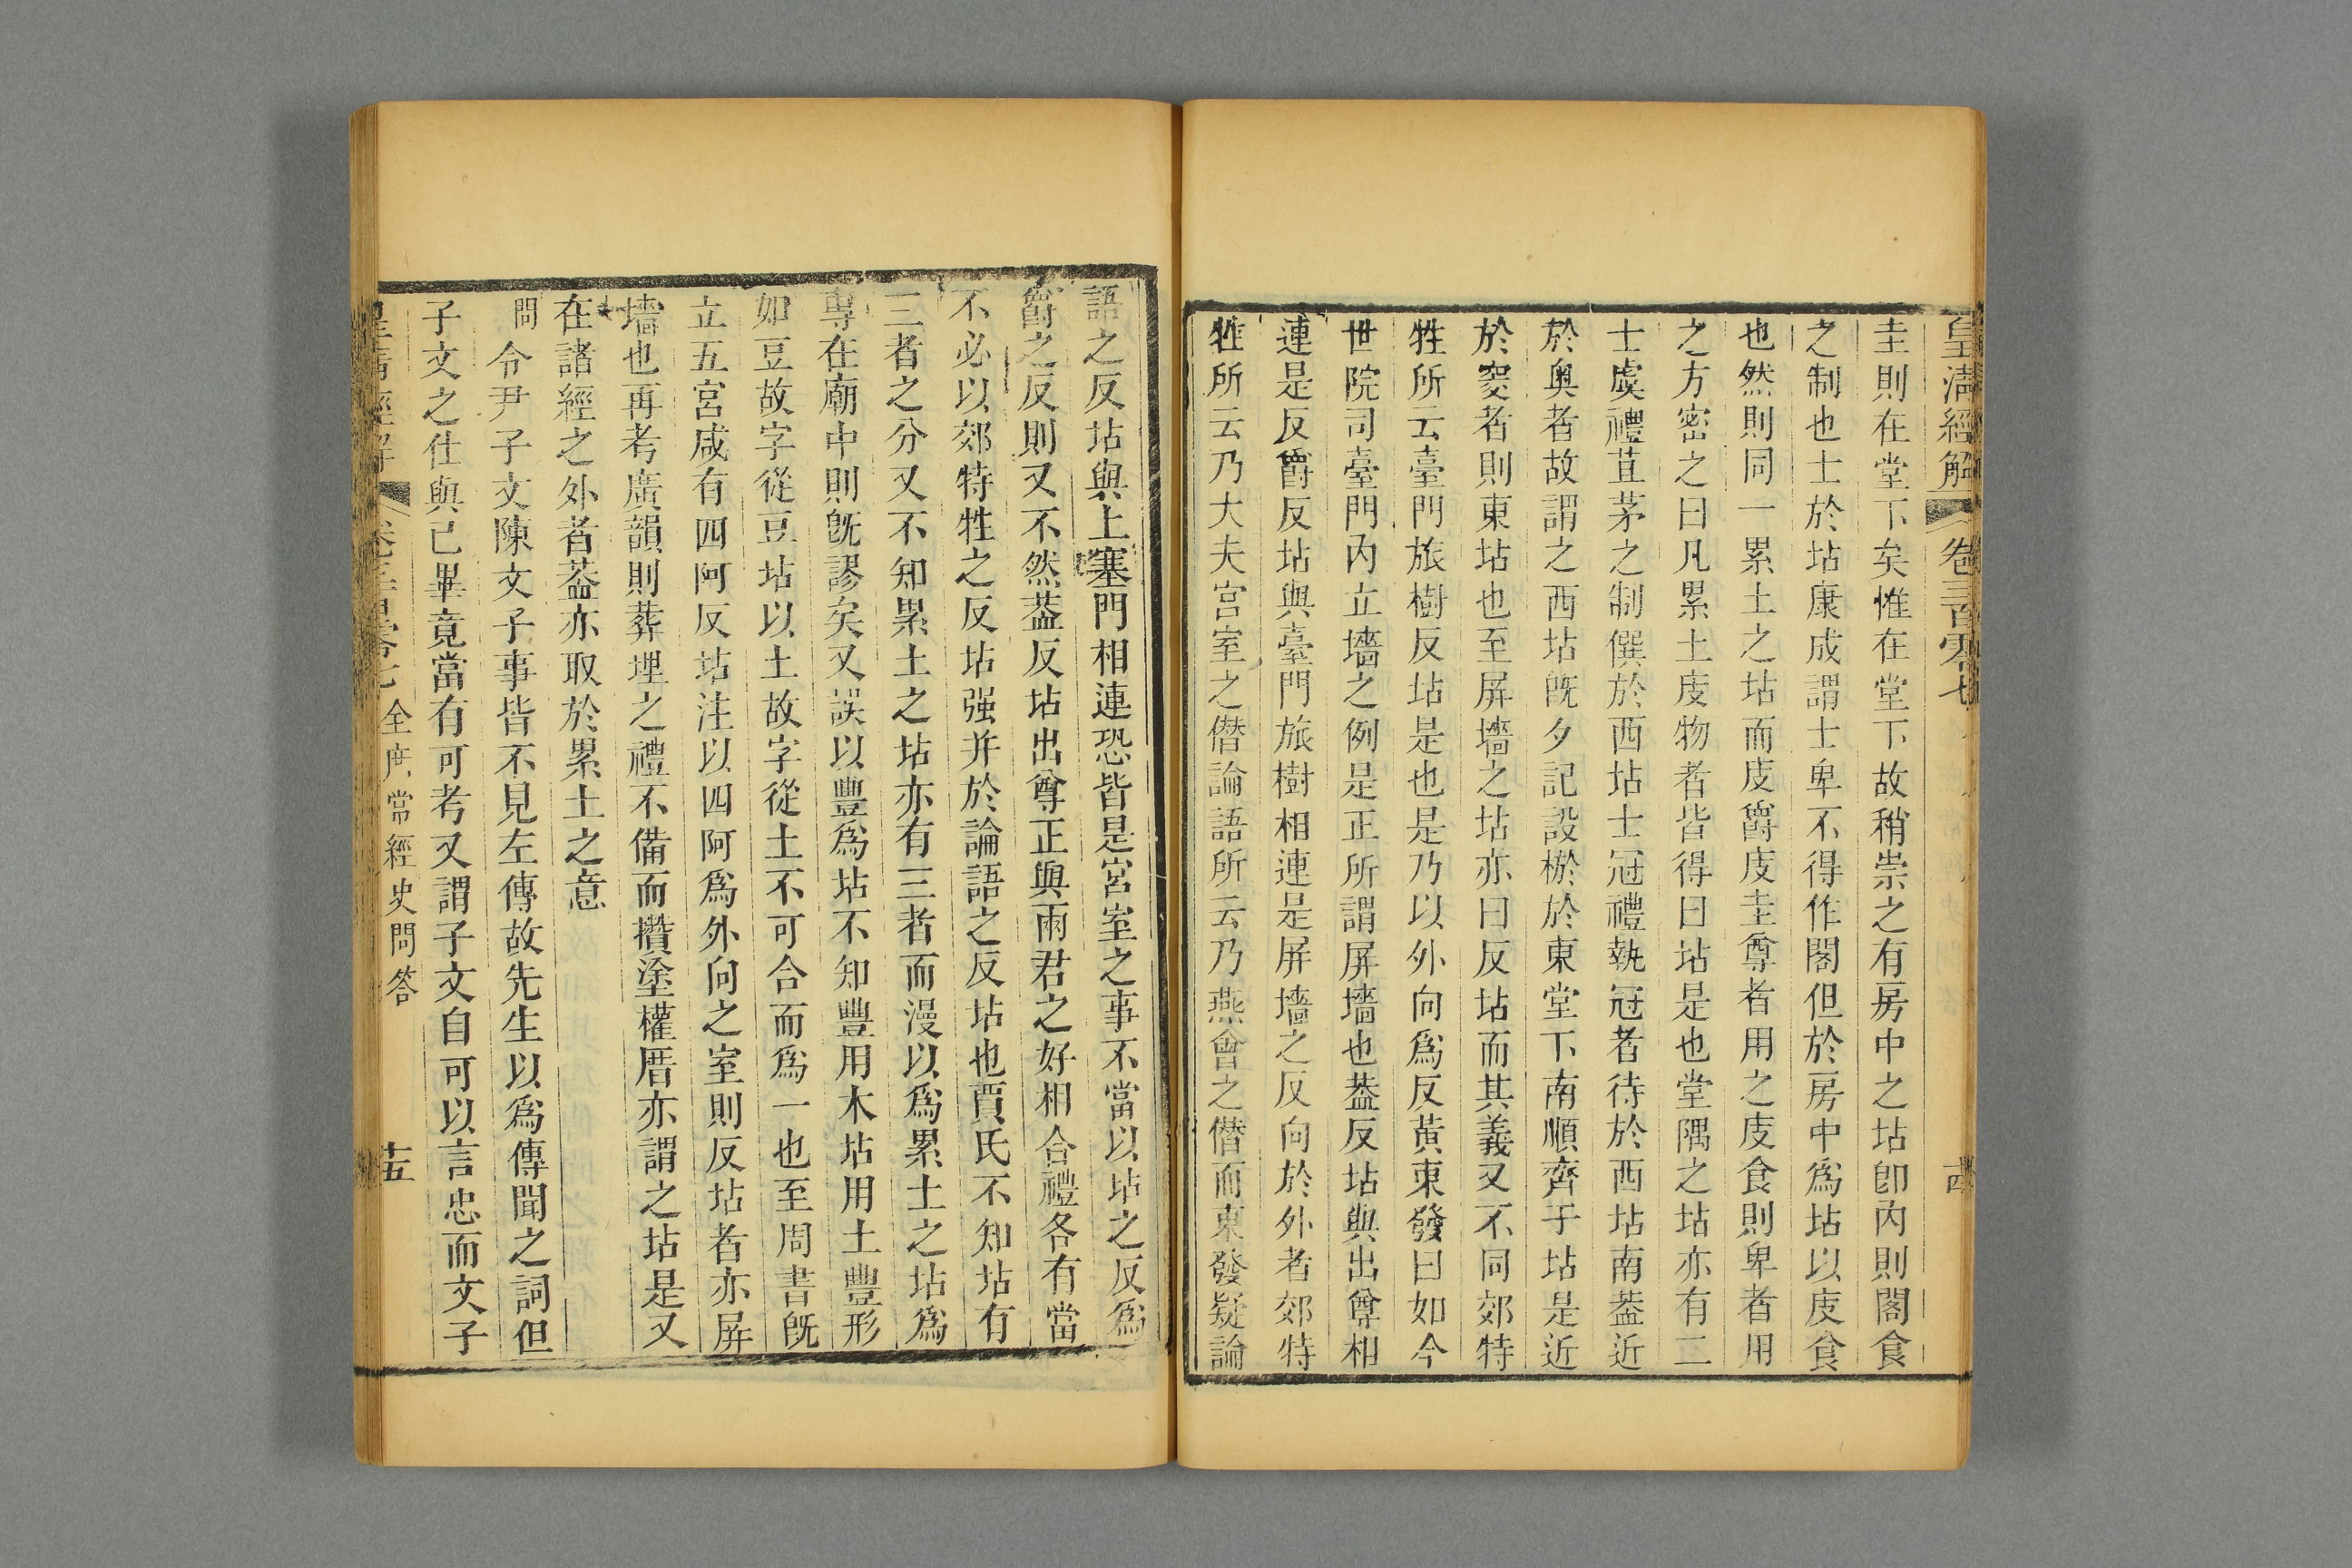 皇清經解 卷三百零七 十四
圭則在堂下矣惟在堂下故稍崇之有房中之坫卽內則閣食
之制也士於坫康成謂士卑不得作閣但於房中爲坫以庋食
也然則同一累土之坫而庋爵庋圭尊者用之庋食則卑者用
之方密之曰凡累土庋物者皆得曰坫是也堂隅之坫亦有二
士虞禮苴茅之制僎於西坫士冠禮執冠者待於西坫南葢近
於奧者故謂之西坫旣夕記設棜於東堂下南順齊于坫是近
於窔者則東坫也至屏墻之坫亦曰反坫而其義又不同郊特
牲所云臺門旅樹反坫是也是乃以外向爲反黃東發曰如今
世院司臺門內立墻之例是正所謂屏墻也葢反坫與出尊相
連是反爵反坫與臺門旅樹相連是屏墻之反向於外者郊特
牲所云乃大夫宮室之僭論語所云乃燕會之僭而東發疑論
語之反坫與上塞門相連恐皆是宮室之事不當以坫之反爲
爵之反則又不然葢反坫出尊正與兩君之好相合禮各有當
不必以郊特牲之反坫强并於論語之反坫也賈氏不知坫有
三者之分又不知累土之坫亦有三者而漫以爲累土之坫爲
專在廟中則旣謬矣又誤以豐爲坫不知豐用木坫用土豐形
如豆故字從豆坫以土故字從土不可合而爲一也至周書旣
立五宮咸有四阿反坫注以四阿爲外向之室則反坫者亦屏
墻也再考廣韻則葬埋之禮不備而攢塗權厝亦謂之坫是又
在諸經之外者葢亦取於累土之意
問令尹子文陳文子事皆不見左傳故先生以爲傳聞之詞但
子文之仕與已畢竟當有可考又謂子文自可以言忠而文子
皇清經解 卷三百零七 全庶常經史問答 十五